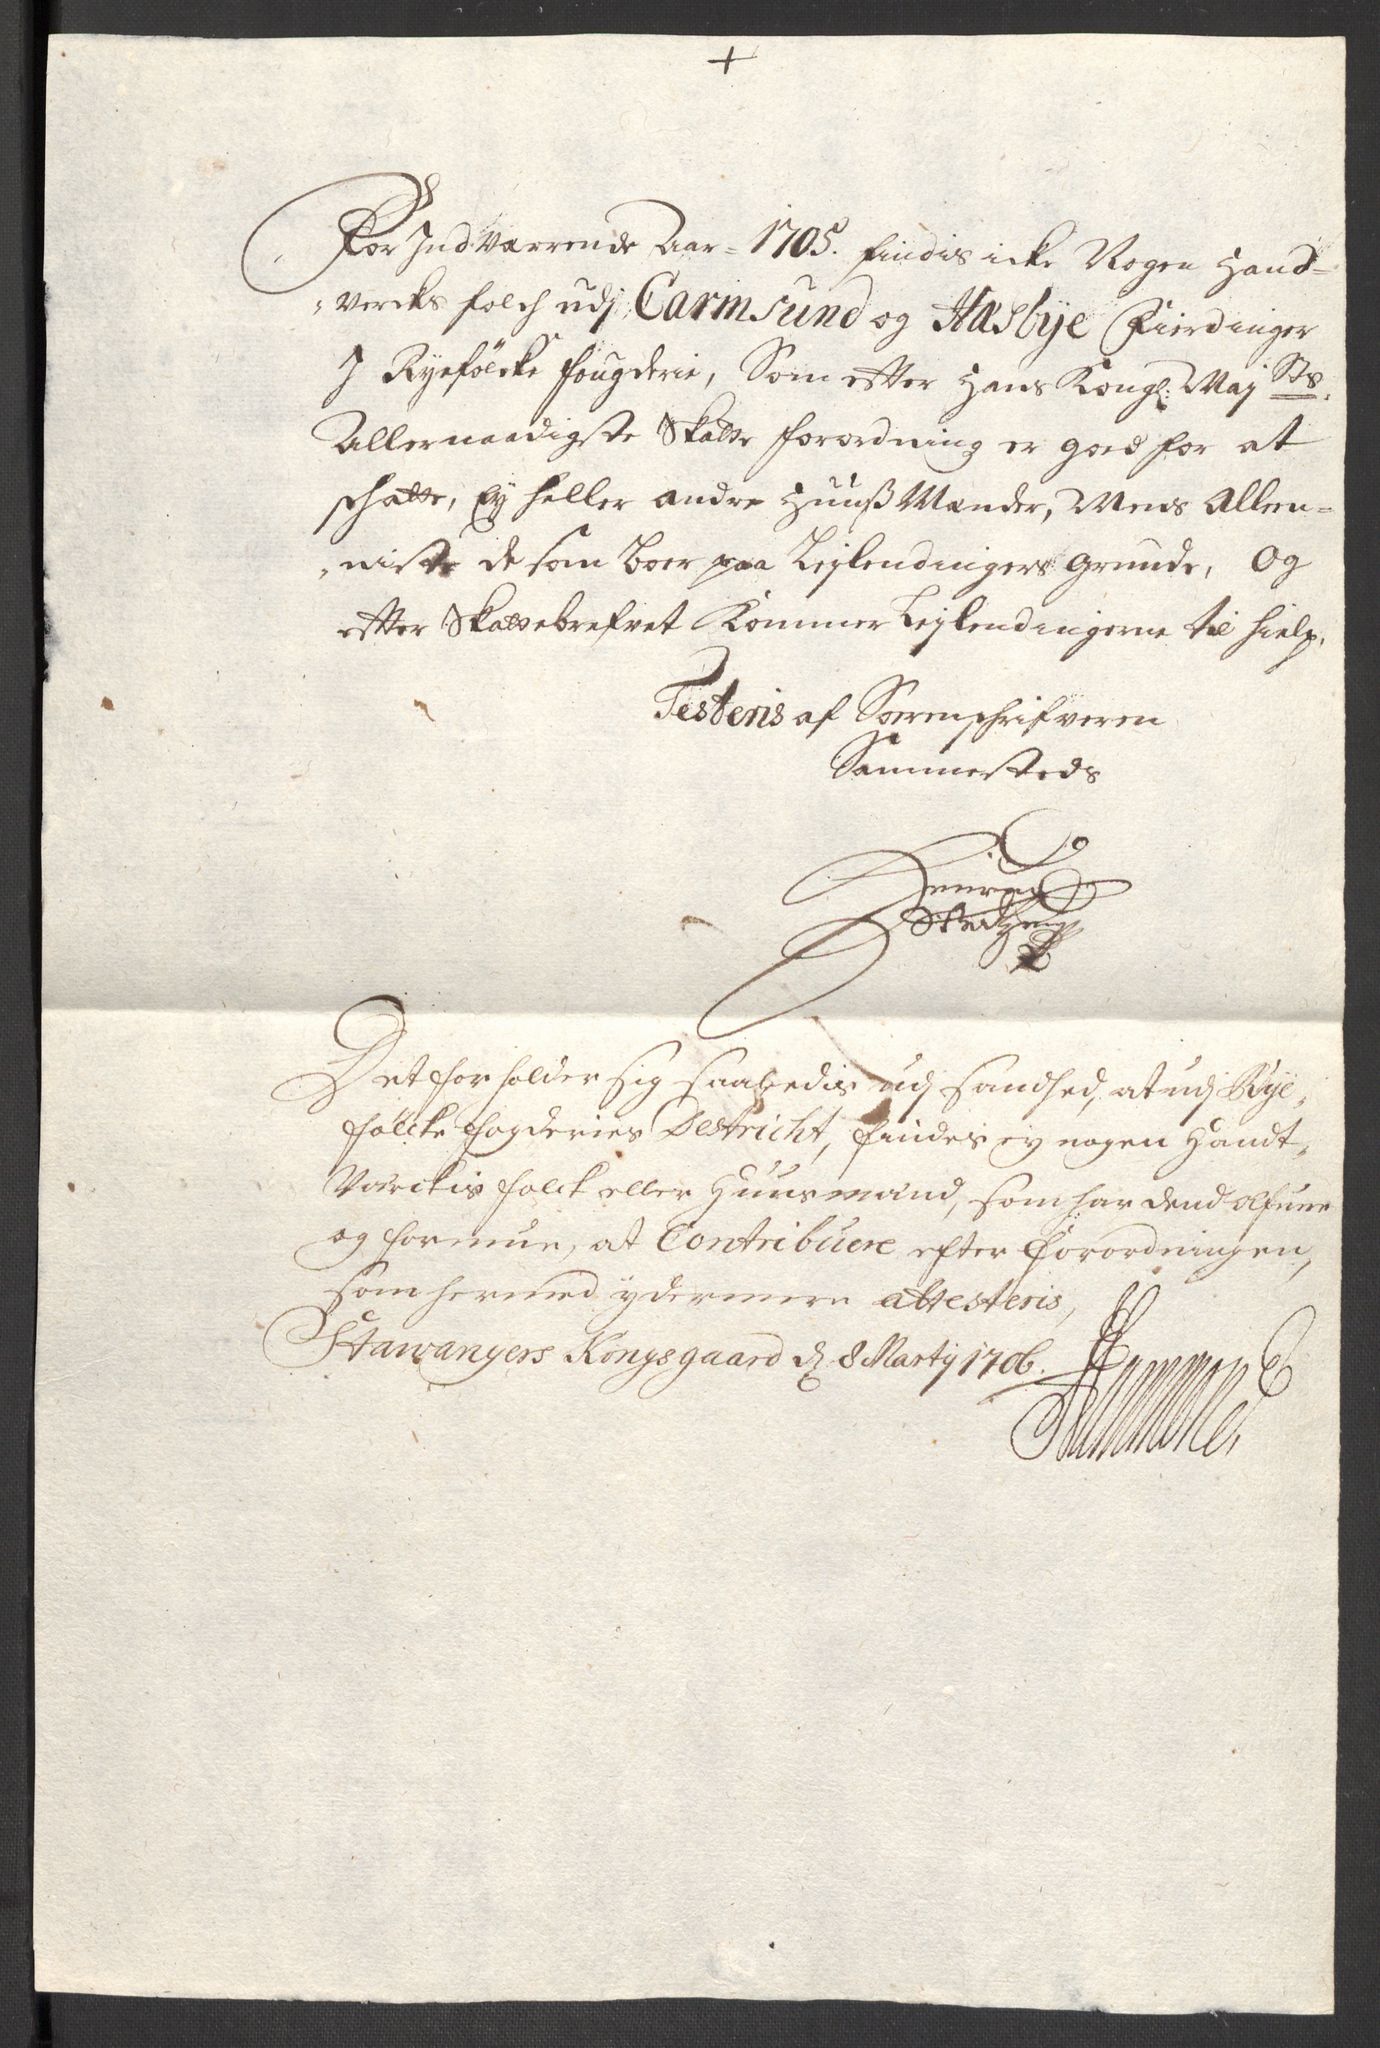 +
For Indværrende Aar = 1705. findis icke Nogen Hand=
vercks folch udj Carmsund og Hæsbye Fierdinger
J Ryefölcke fougderie, Som etter Hans Kongl: Maj Sts.
Allernaadigste Skatte forordning er goed for at
schatte, Ey heller andre HuußMænder, Mens Allen=
niste de som boer paa Leylendingers grunde, Og
etter Skattebrefvet Kommer Leylendingerne til hielp.
Testeris af Sorenschrifveren
Sammesteds
Henrich
Det forholder sig saaledis udj sandhed, at udj Rye,
fölcke fogderies Destricht, findes ey nogen Handt,
Værckis folck eller Huusmænd, som har dend
og formue, at Contribuere efter forordningen,
som hermed ydermere attesteris,
Stawangers Kongsgaard d 8 Martij 1706.